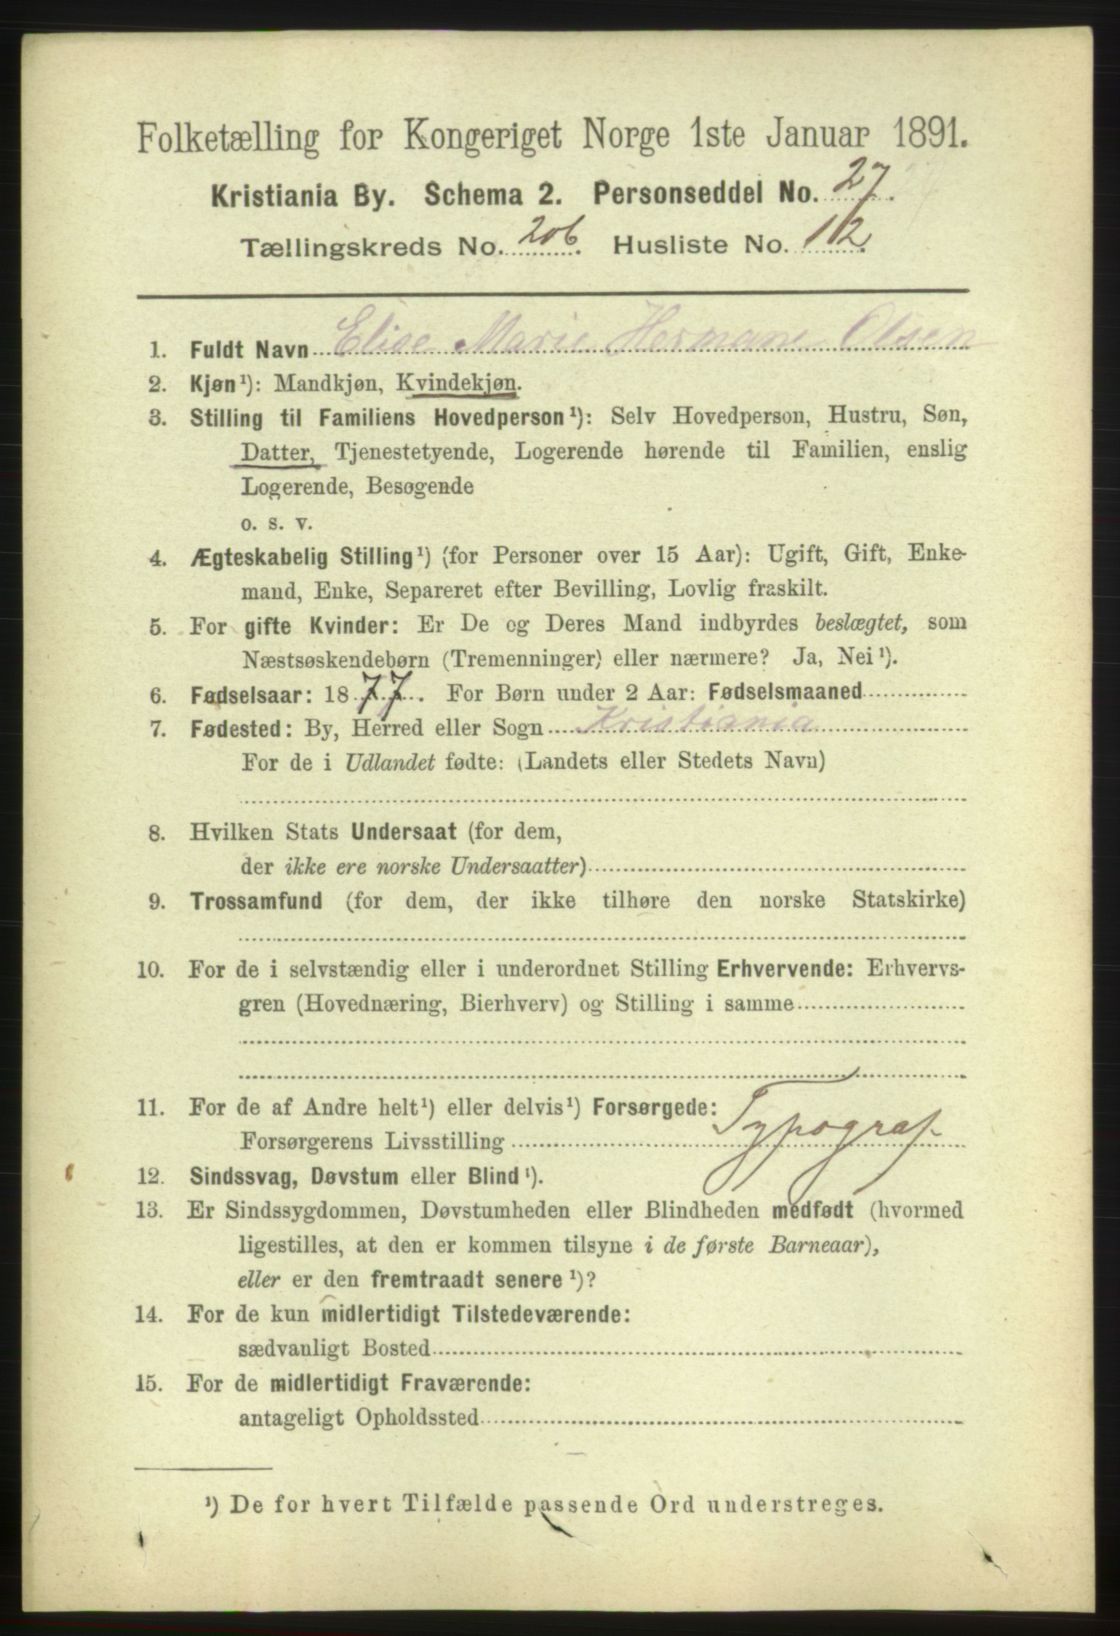 Folketælling for Kongeriget Norge 1ste Januar 1891.
Kristiania By. Schema 2. Personseddel No. 27.
Tællingskreds No. 206. Husliste No. 112.
1. Fuldt Navn Elise Marie Hermane Olsen
2. Kjøn¹): Mandkjøn, Kvindekjøn.
3. Stilling til Familiens Hovedperson¹): Selv Hovedperson, Hustru, Søn,
Datter, Tjenestetyende, Logerende hørende til Familien, enslig
Logerende, Besøgende
o. s. v.
4. Ægteskabelig Stilling¹) (for Personer over 15 Aar): Ugift, Gift, Enke-
mand, Enke, Separeret efter Bevilling, Lovlig fraskilt.
5. For gifte Kvinder: Er De og Deres Mand indbyrdes beslægtet, som
Næstsøskendebørn (Tremenninger) eller nærmere? Ja, Nei¹).
6. Fødselsaar: 1877. For Børn under 2 Aar: Fødselsmaaned
7. Fødested: By, Herred eller Sogn Kristiania
For de i Udlandet fødte: (Landets eller Stedets Navn)
8. Hvilken Stats Undersaat (for dem,
der ikke ere norske Undersaatter)
9. Trossamfund (for dem, der ikke tilhøre den norske Statskirke)
10. For de i selvstændig eller i underordnet Stilling Erhvervende: Erhvervs-
gren (Hovednæring, Bierhverv) og Stilling i samme
11. For de af Andre helt¹) eller delvis¹) Forsørgede:
Forsørgerens Livsstilling Typograf
12. Sindssvag, Døvstum eller Blind¹).
13. Er Sindssygdommen, Døvstumheden eller Blindheden medfødt (hvormed
ligestilles, at den er kommen tilsyne i de første Barneaar),
eller er den fremtraadt senere¹)?
14. For de kun midlertidigt Tilstedeværende:
sædvanligt Bosted
15. For de midlertidigt Fraværende:
antageligt Opholdssted
¹) De for hvert Tilfælde passende Ord understreges.